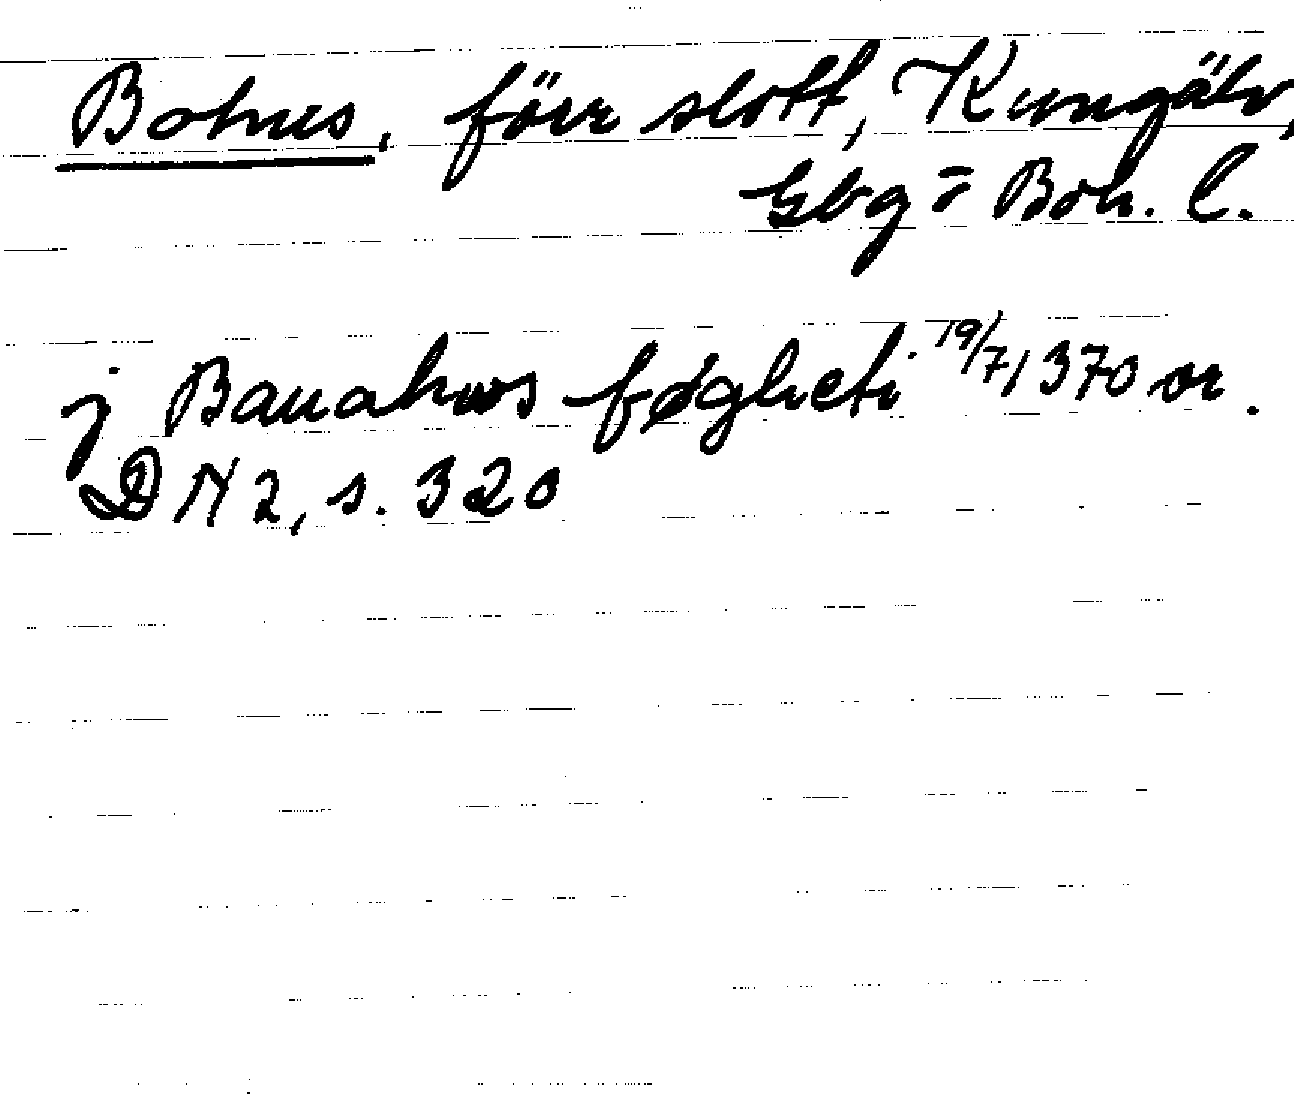 Bohus, förr slott, Kungälv,
Gbg o Boh. l.
j Bauahws føgheti 19/7 1370 or.
DN 2, s. 320